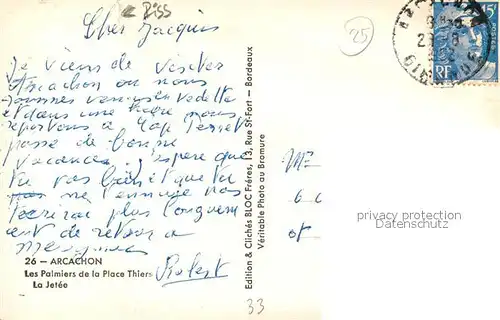 Cher Jacquis
Je viens de visiter
Arcachon ou nous
sommes venus en vedette
et dans une heure nous
repartons à Cap Ferret
passe de bonne
vacances. J'espere que
tu vas bien et que tu
ne t'ennuie pas
t'ecrirai plus longuem
ent de retour a
Robert
26 - ARCACHON
Les Palmiers de la Place Thiers
La Jetée
Edition & Clichés BLOC Frères, 13, Rue St-Fort - Bordeaux
Véritable Photo au Bromure
25
15F
POSTES
RF
33
privacy protection
www.delcampe.net